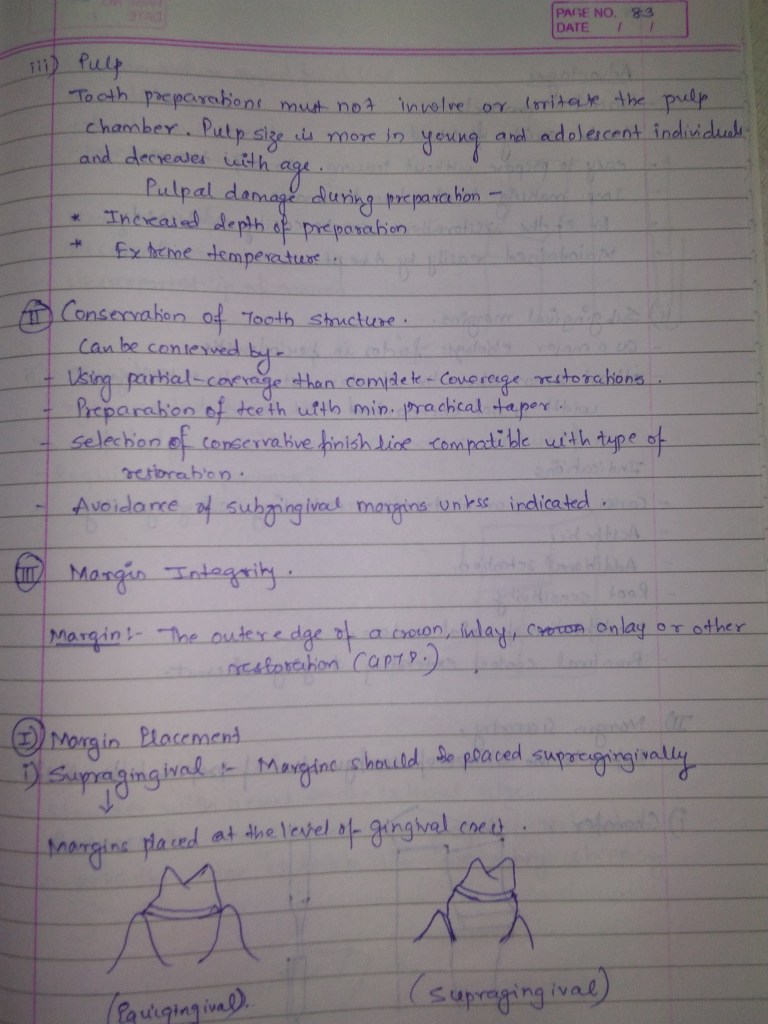 PAGE NO. 83
DATE / /
iii) Pulp
Tooth preparations must not involve or irritate the pulp
chamber. Pulp size is more in young and adolescent individuals
and decreases with age.
Pulpal damage during preparation -
* Increased depth of preparation
* Extreme temperature.
II Conservation of Tooth structure.
Can be conserved by -
- Using partial-coverage than complete-coverage restorations.
- Preparation of teeth with min. practical taper.
- selection of conservative finish line compatible with type of
restoration.
- Avoidance of subgingival margins unless indicated.
III Margin Integrity.
Margin :- The outer edge of a crown, inlay, onlay or other
restoration (GPT8.)
I) Margin Placement
i) Supragingival :- Margins should be placed supragingivally
↓
Margins placed at the level of gingival crest.
(Equigingival). (Supragingival)